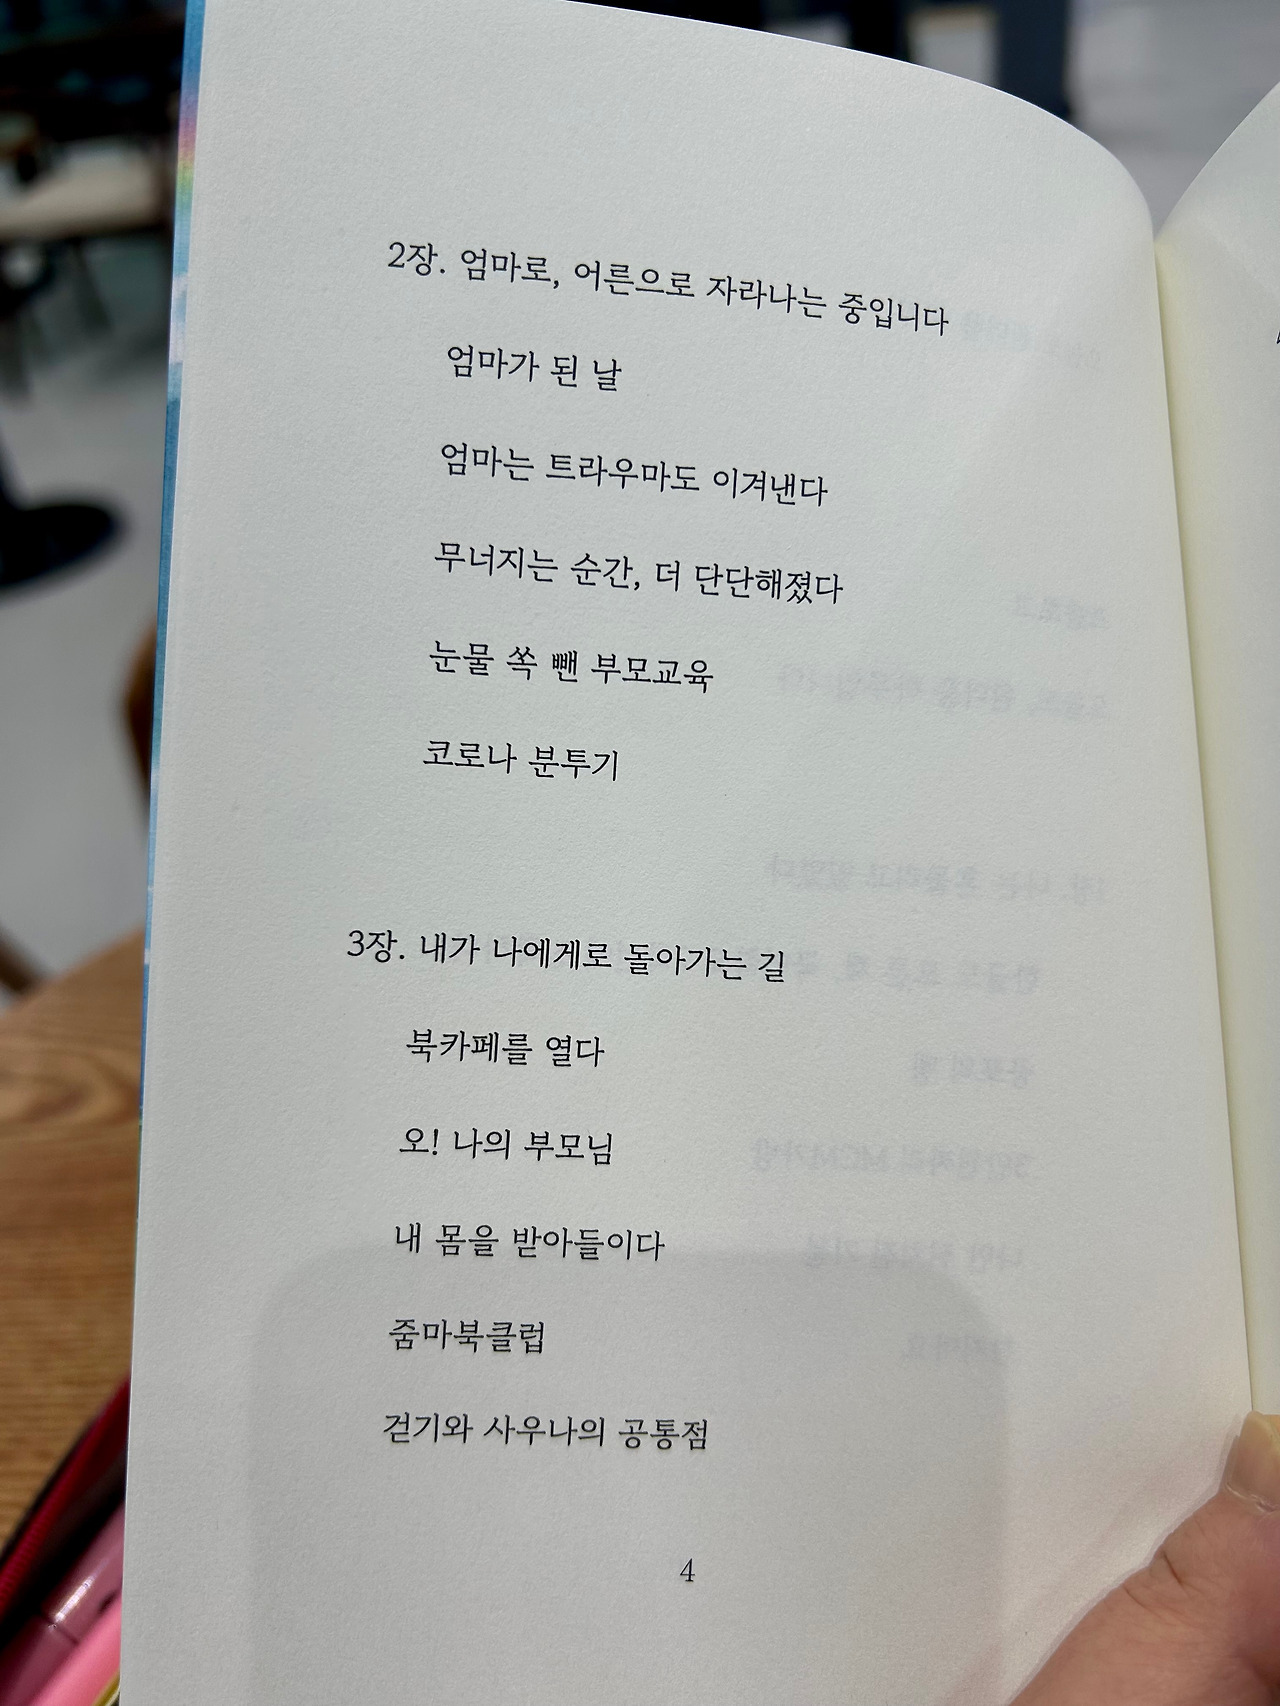 2장. 엄마로, 어른으로 자라나는 중입니다
엄마가 된 날
엄마는 트라우마도 이겨낸다
무너지는 순간, 더 단단해졌다
눈물 쏙 뺀 부모교육
코로나 분투기
3장. 내가 나에게로 돌아가는 길
북카페를 열다
오! 나의 부모님
내 몸을 받아들이다
줌마북클럽
걷기와 사우나의 공통점
4